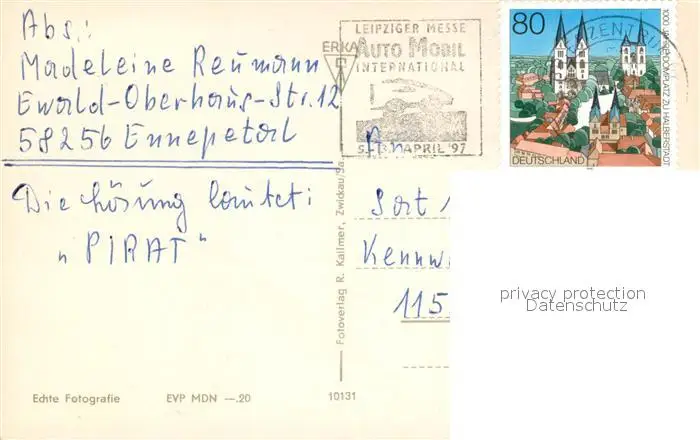 Abs.:
Madeleine Reumann
Ewald-Oberhaus-Str. 12
58256 Ennepetal
Die Lösung lautet:
„PIRAT"
ERKA
LEIPZIGER MESSE
AUTO MOBIL
INTERNATIONAL
APRIL '97
80
1000 JAHRE DOMPLATZ ZU HALBERSTADT
DEUTSCHLAND
An
Kennw
115
privacy protection
Datenschutz
Fotoverlag R. Kallmer, Zwickau/Sa.
Echte Fotografie EVP MDN —.20 10131